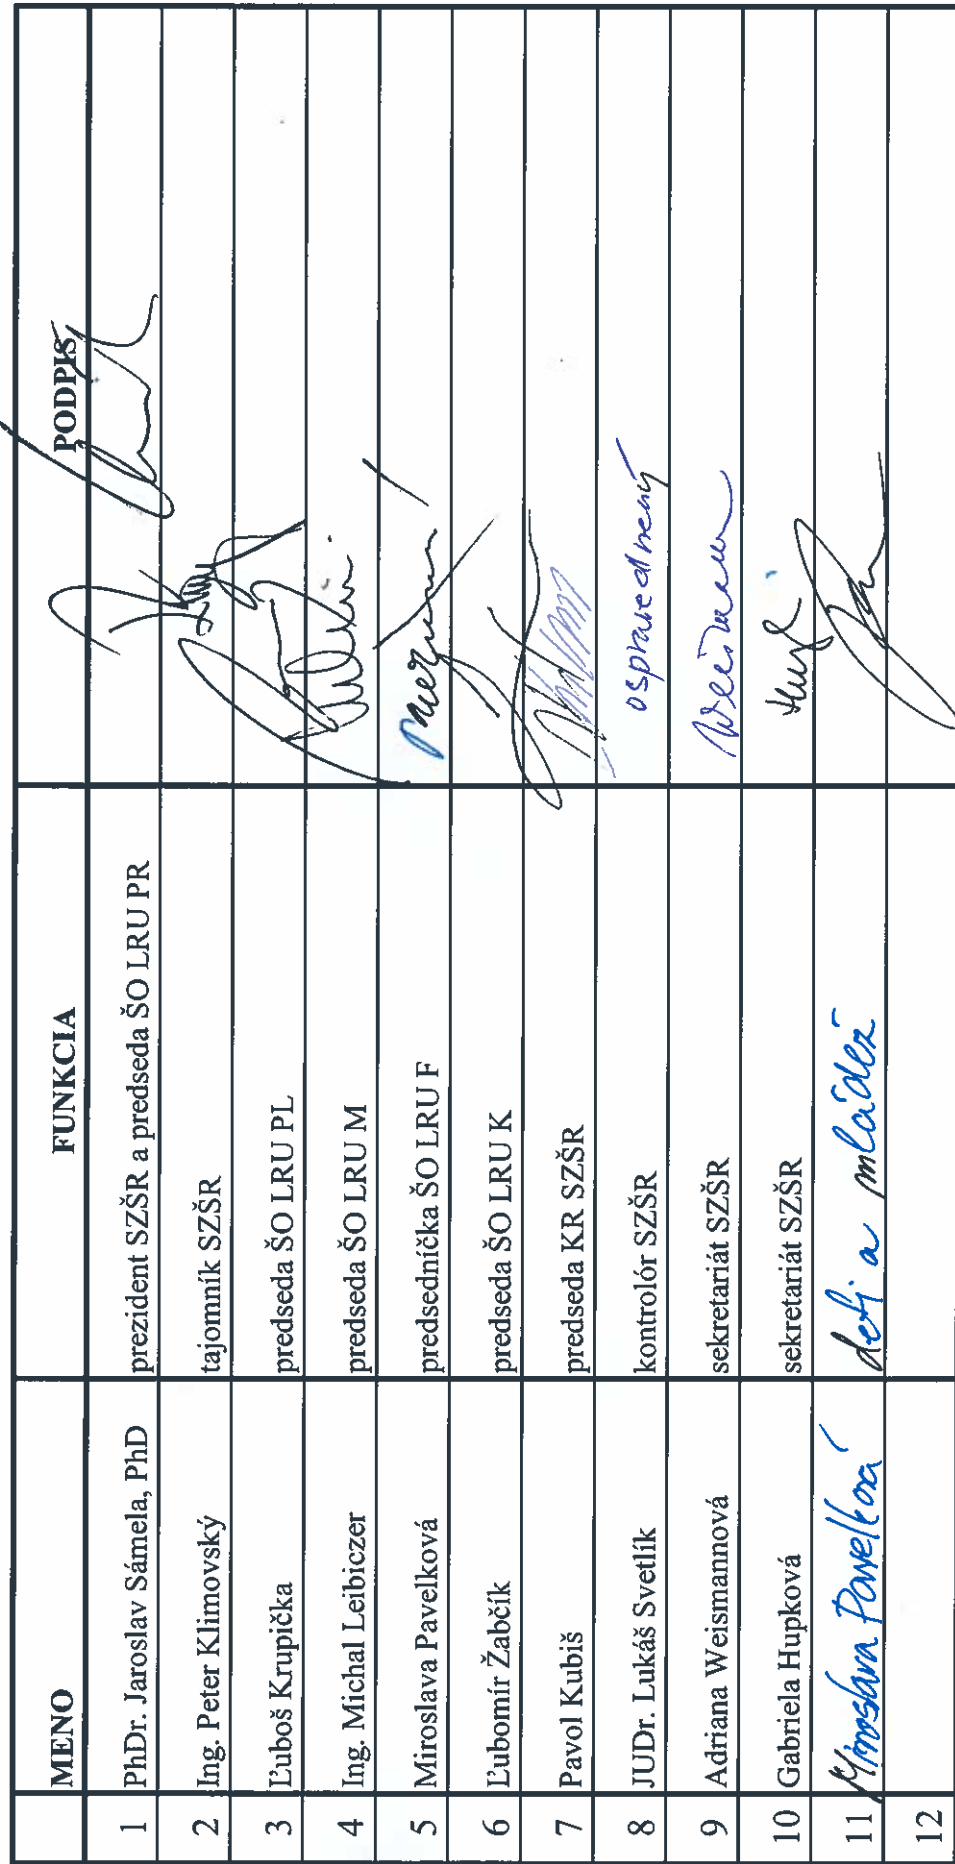 MENO FUNKCIA PODPIS
1 PhDr. Jaroslav Sámela, PhD prezident SZŠR a predseda ŠO LRU PR
2 Ing. Peter Klimovský tajomník SZŠR
3 Ľuboš Krupička predseda ŠO LRU PL
4 Ing. Michal Leibiczer predseda ŠO LRU M
5 Miroslava Pavelková predsedníčka ŠO LRU F
6 Ľubomír Žabčík predseda ŠO LRU K
7 Pavol Kubiš predseda KR SZŠR
8 JUDr. Lukáš Svetlík kontrolór SZŠR ospravedlnený
9 Adriana Weismannová sekretariát SZŠR
10 Gabriela Hupková sekretariát SZŠR
11 Miroslava Pavelková deti a mládež
12